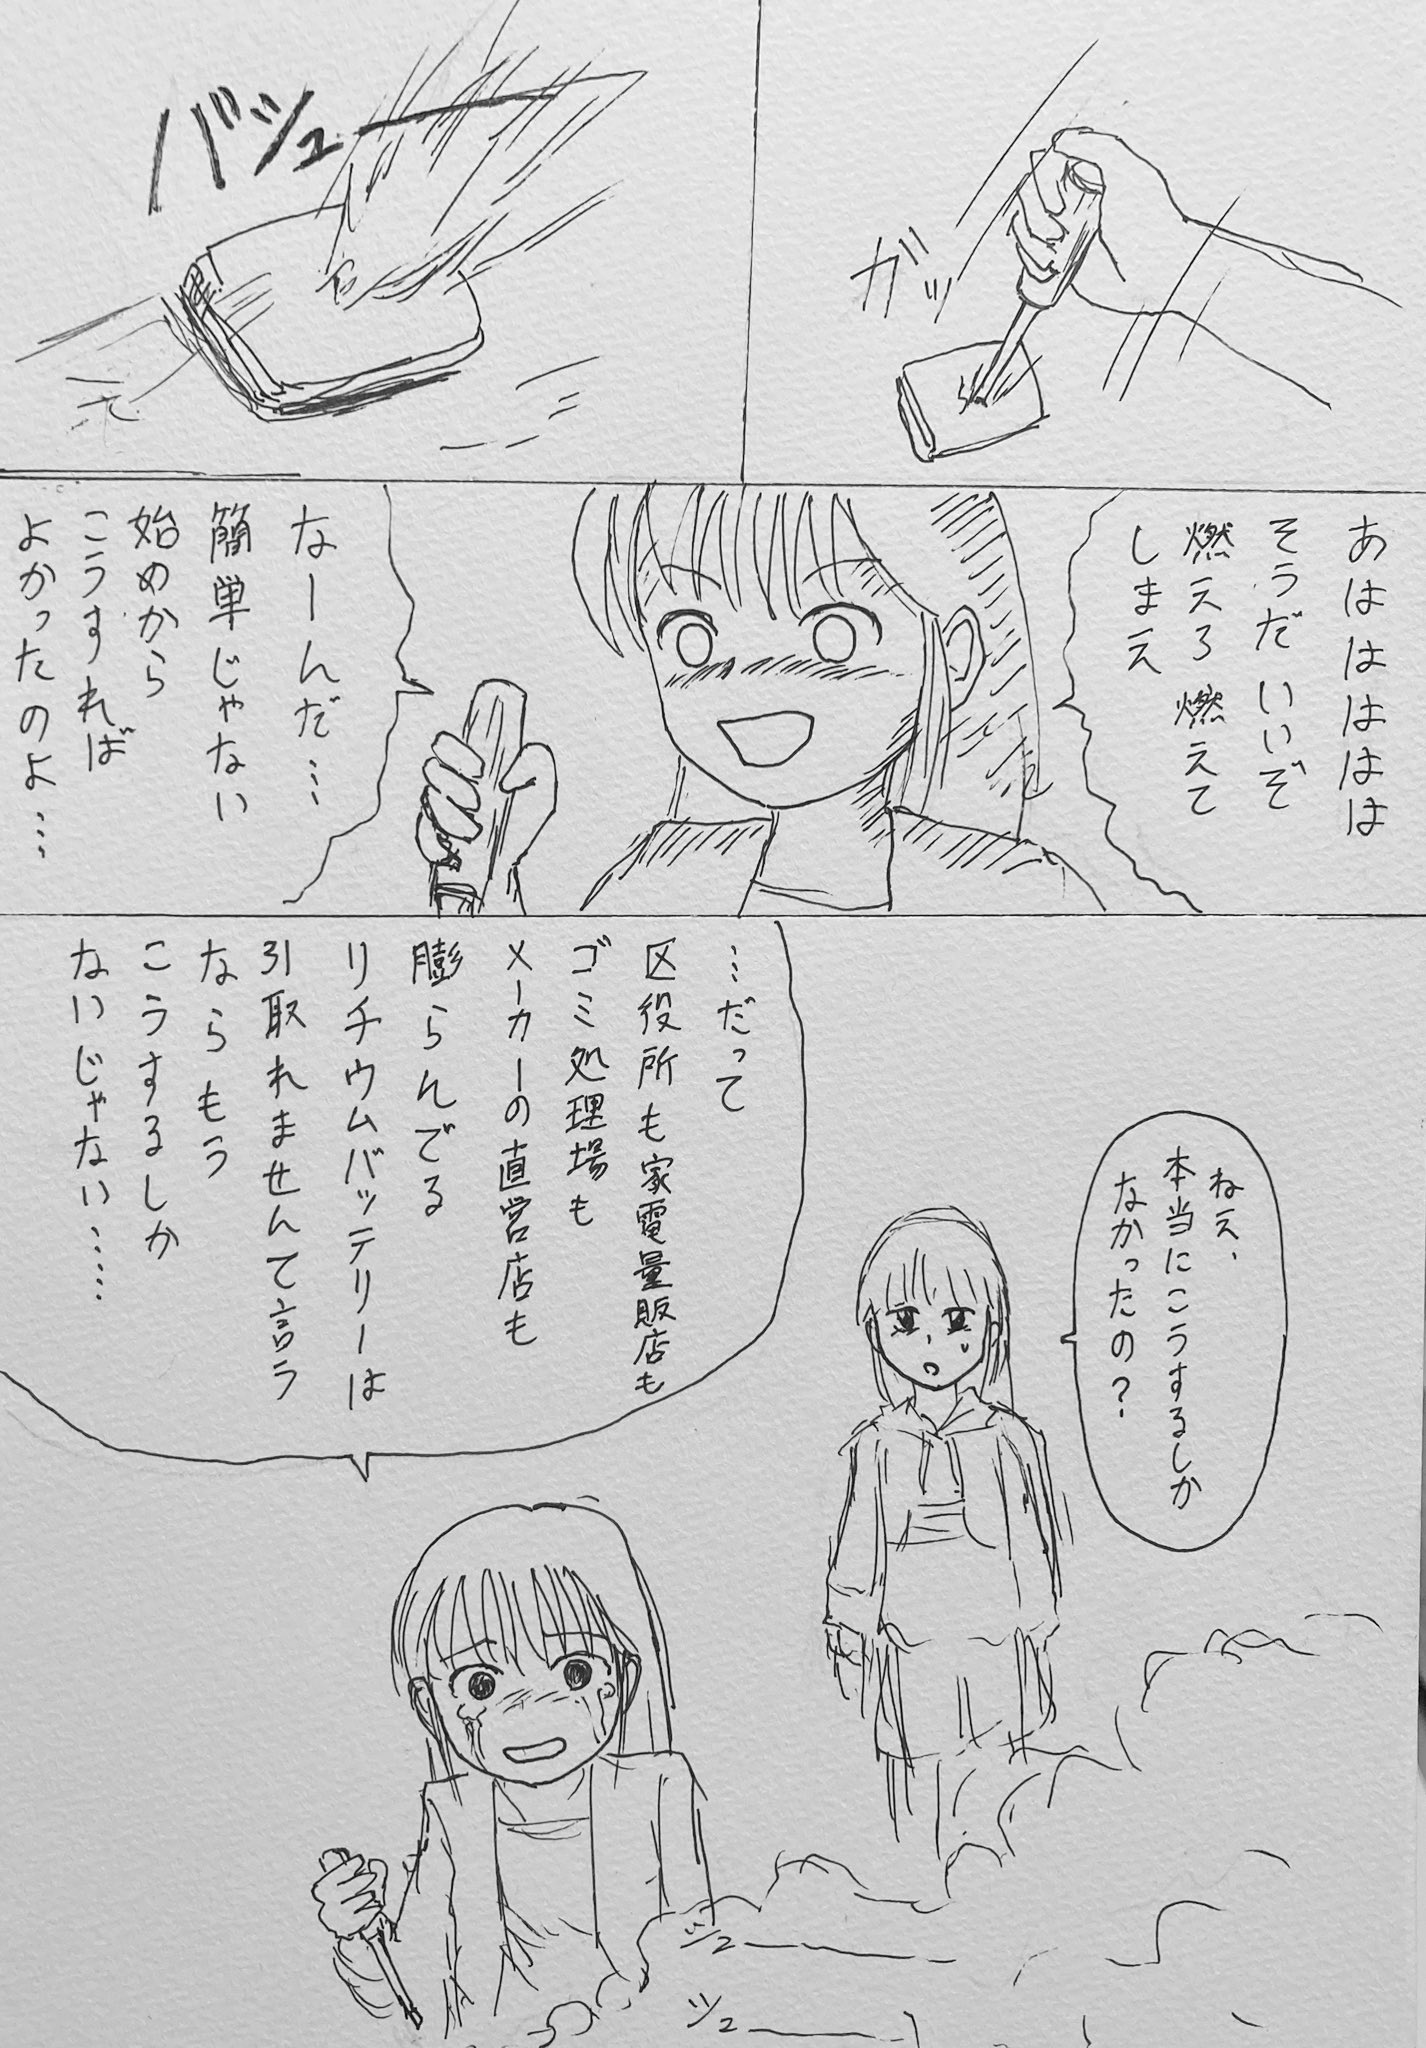 ガッ
バシュー
あはははは
そうだいいぞ
燃えろ燃えて
しまえ
なーんだ…
簡単じゃない
始めから
こうすれば
よかったのよ…
ねえ、
本当にこうするしか
なかったの？
…だって
区役所も家電量販店も
ゴミ処理場も
メーカーの直営店も
膨らんでる
リチウムバッテリーは
引取れませんて言う
ならもう
こうするしか
ないじゃない……
シュー
シュー